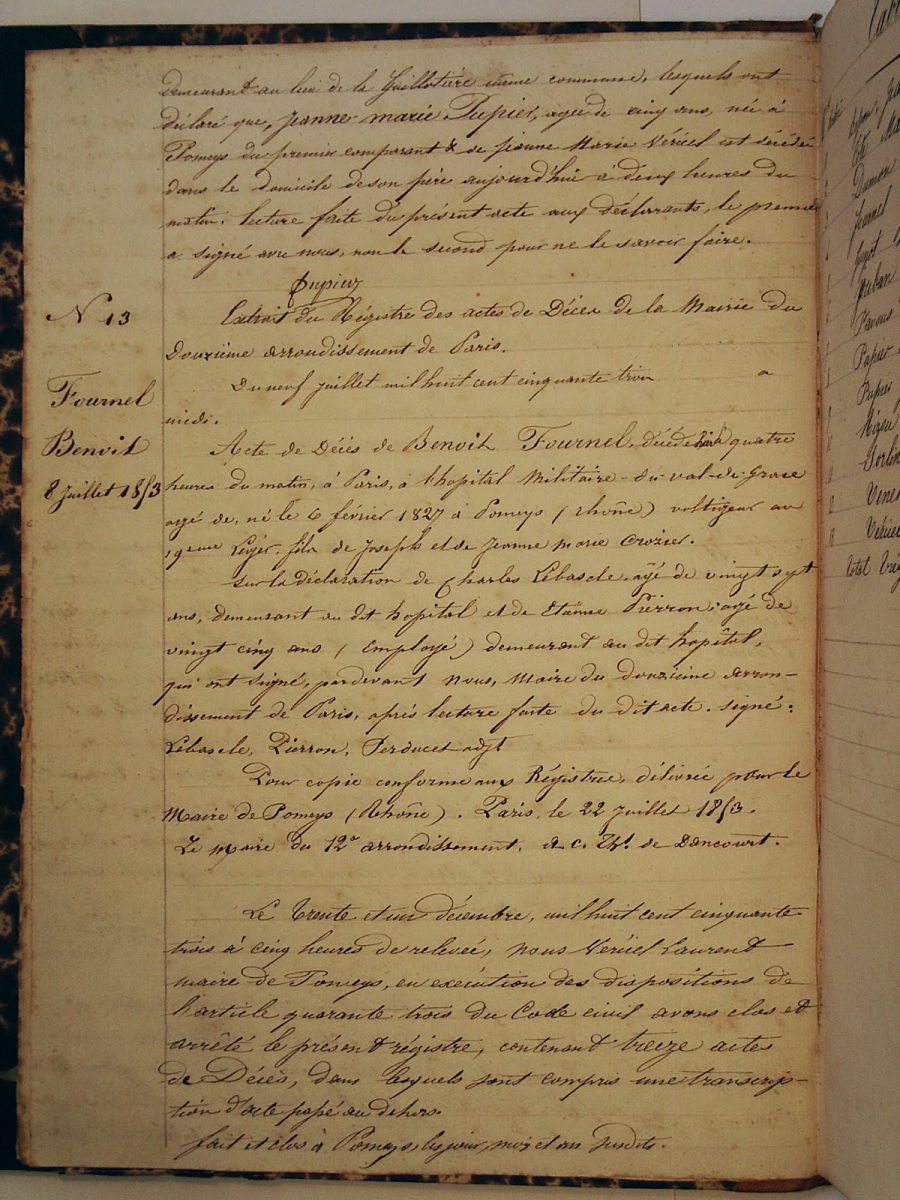 demeurant au lieu de la Guillotière même commune, lesquels ont
déclaré que, Jeanne-marie Pupier, agée de cinq ans, née à
Pomeys du premier comparant & de Jeanne Marie Vériel est décédée
dans le domicile de son père aujourd'hui à deux heures du
matin. lecture faite du présent acte aux déclarants, le premier
a signé avec nous, non le second pour ne le savoir faire.
Pupier
N 13
Extrait du Régistre des actes de Décès de la Mairie du
Douzième arrondissement de Paris.
Du neuf juillet mil huit cent cinquante trois a
midi.
Fournel
Benoit
8 Juillet 1853
Acte de Décès de Benoit Fournel, décédé hier à quatre
heures du matin, à Paris, à l'hopital Militaire du val-de-grace
agé de, né le 6 février 1827 à Pomeys (rhône) voltigeur au
19eme Léger. fils de Joseph et de Jeanne marie Crozier.
Sur la déclaration de Charles Lebascle, agé de vingt sept
ans, demeurant au dit hopital et de Etienne Pierron agé de
vingt cinq ans (employé) demeurant au dit hopital,
qui ont signé, pardevant Nous, Maire du douzième arron-
dissement de Paris, après lecture faite du dit acte. signé:
Lebascle, Pierron, Perducet adjt
Pour copie conforme aux Régistres, délivrée pour le
Maire de Pomeys (Rhône). Paris, le 22 Juillet 1853.
Le maire du 12e arrondissement, de Dancourt.
Le trente et un décembre, mil huit cent cinquante
trois à cinq heures de relevée, nous Veriiel Laurent
maire de Pomeys, en exécution des dispositions de
l'article quarante trois du Code civil avons clos et
arrêté le présent régistre, contenant treize actes
de Décès, dans lesquels sont compris une transcrip-
tion d'acte passé au dehors.
fait et clos à Pomeys, les jour, mois et an susdits.
Dumon
Fournel
Guyot
Pupier
Total